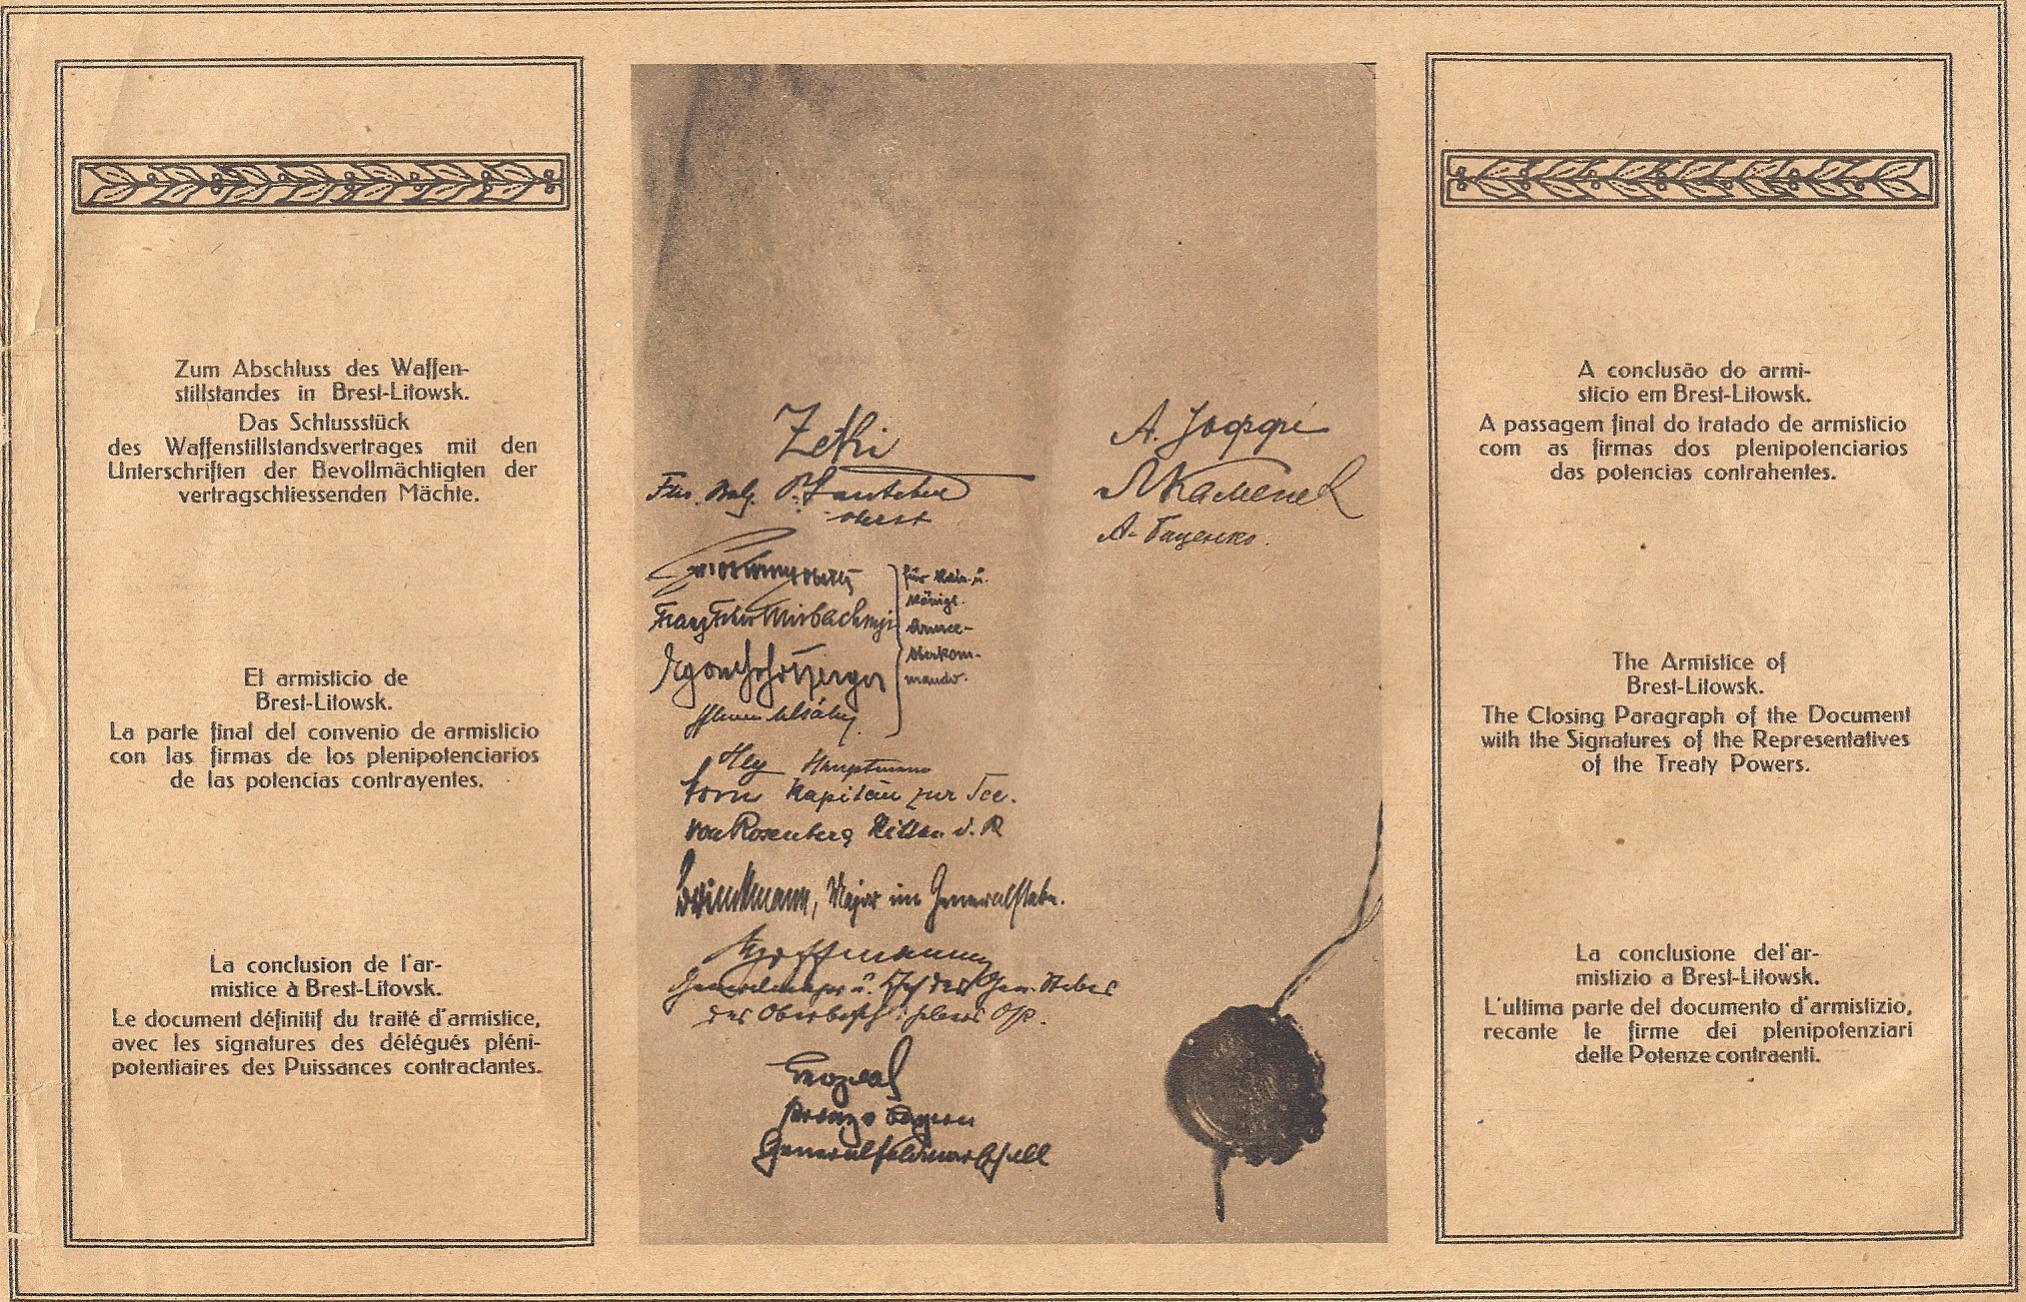 Zum Abschluss des Waffen-
stillstandes in Brest-Litowsk.
Das Schlussstück
des Waffenstillstandsvertrages mit den
Unterschriften der Bevollmächtigten der
vertragschliessenden Mächte.
El armisticio de
Brest-Litowsk.
La parte final del convenio de armisticio
con las firmas de los plenipotenciarios
de las potencias contrayentes.
La conclusion de l'ar-
mistice à Brest-Litovsk.
Le document définitif du traité d'armistice,
avec les signatures des délégués pléni-
potentiaires des Puissances contractantes.
Zeki
Oberst
für Kais. u.
Königl.
Armee-
Oberkom-
mando.
Hey Hauptmann
Horn Kapitän zur See.
von Rosenberg
Brinckmann, Major im Generalstabe.
Hoffmann
Generalmajor u. Chef des Gen. Stabes
des Oberbefehlshabers Ost.
Leopold
Prinz v Bayern
Generalfeldmarschall
А. Іоффе
Л Каменев
А. Биценко.
A conclusão do armi-
sticio em Brest-Litowsk.
A passagem final do tratado de armisticio
com as firmas dos plenipotenciarios
das potencias contrahentes.
The Armistice of
Brest-Litowsk.
The Closing Paragraph of the Document
with the Signatures of the Representatives
of the Treaty Powers.
La conclusione del'ar-
mistizio a Brest-Litowsk.
L'ultima parte del documento d'armistizio,
recante le firme dei plenipotenziari
delle Potenze contraenti.